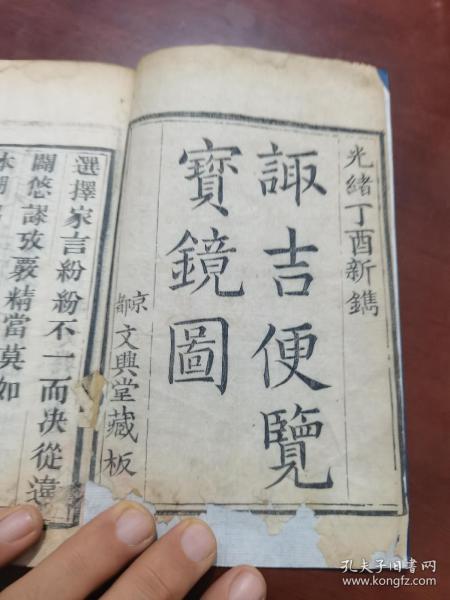 光緒丁酉新鐫
諏吉便覽
寶鏡圖
京都文興堂藏板
選擇家言紛紛不一而决從違
闢悠謬攷覈精當莫如
孔夫子旧书网
www.kongfz.com